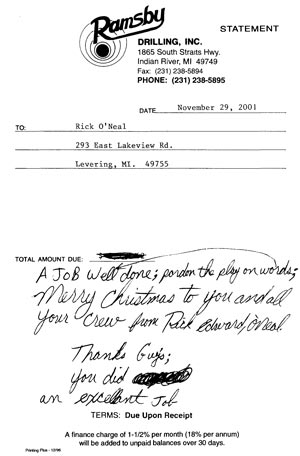 Ramsby
STATEMENT
DRILLING, INC.
1865 South Straits Hwy.
Indian River, MI 49749
Fax: (231) 238-5894
PHONE: (231) 238-5895
DATE November 29, 2001
TO: Rick O'Neal
293 East Lakeview Rd.
Levering, MI. 49755
TOTAL AMOUNT DUE:
A Job Well done; pardon the play on words;
Merry Christmas to you and all
your Crew from Rick Edward, O'Neal
Thanks Guys;
you did
an excellent Job
TERMS: Due Upon Receipt
A finance charge of 1-1/2% per month (18% per annum)
will be added to unpaid balances over 30 days.
Printing Plus - 12/96